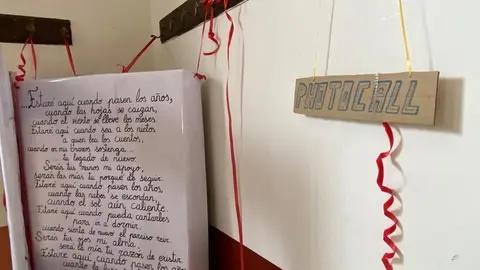 ...Estaré aquí cuando pasen los años,
cuando las hojas se caigan,
cuando el viento se lleve los meses.
Estaré aquí cuando sea a los nietos
a quien lea los cuentos,
cuando en mis brazos sostenga...
tu legado de nuevo.
Serán tus manos mi apoyo,
serán las mías tu porqué de seguir.
Estaré aquí cuando pasen los años,
cuando las nubes se escondan,
cuando el sol aún caliente.
Estaré aquí cuando pueda cantarles
para ir a dormir,
cuando sienta de nuevo el parcioso reir.
Serán tus ojos mi alma,
será la mía tu razón de existir.
Estaré aquí cuando pasen los años
cuando la
PHOTOCALL